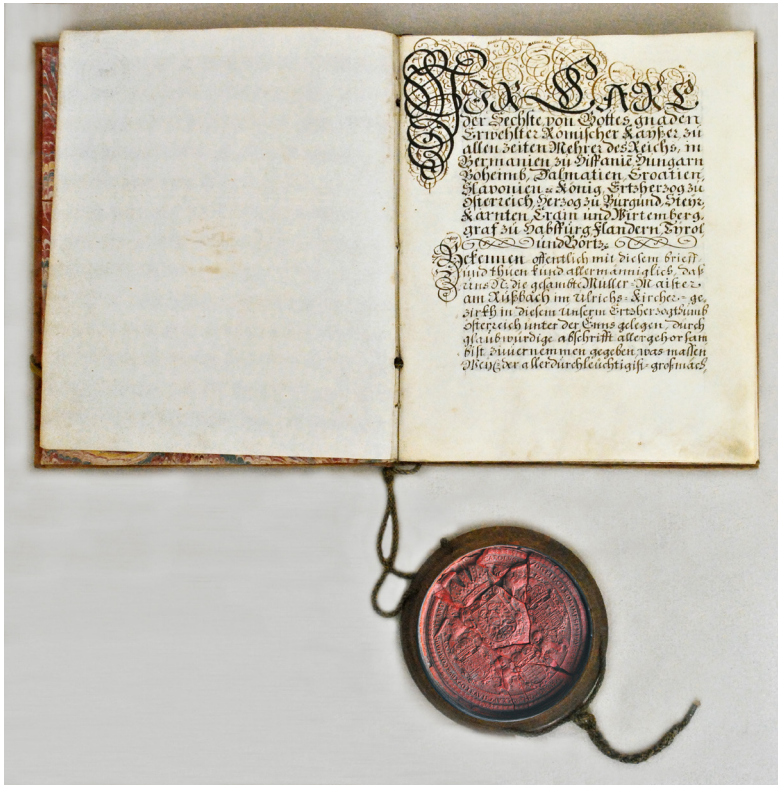 WIR CARL
der Sechste von Gottes gnaden
Erwehlter Römischer Kayßer, zu
allen zeiten Mehrer des Reichs, in
Germanien, zu Hispanie, Hungarn
Boheimb, Dalmatien, Croatien,
Slavonien &c König, Ertzherzog zu
Österreich, Herzog zu Burgund, Steyr,
Kärnten, Crain und Wirtemberg,
graf zu Habspurg, Flandern, Tyrol
und Görtz.
Bekennen offentlich mit diesem brieff,
und thuen kund allermänniglich, daß
uns N: die gesambte Müller-Maister
am Rüßbach im Ulrichs-Kircher-ge-
zirkh in diesem Unserm Ertzherzogthumb
Österreich unter der Enns gelegen, durch
glaubwürdige abschrifft allergehorsam
bist zuvernemmen gegeben, was massen
Weyl: der allerdurchleuchtigist-großmäch